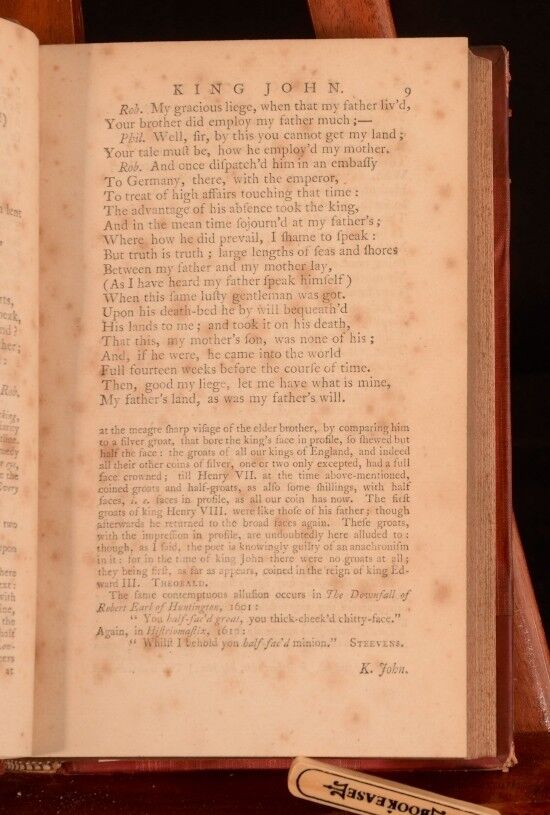 KING JOHN. 9
Rob. My gracious liege, when that my father liv'd,
Your brother did employ my father much;—
Phil. Well, ſir, by this you cannot get my land;
Your tale muſt be, how he employ'd my mother.
Rob. And once diſpatch'd him in an embaſſy
To Germany, there, with the emperor,
To treat of high affairs touching that time:
The advantage of his abſence took the king,
And in the mean time ſojourn'd at my father's;
Where how he did prevail, I ſhame to ſpeak:
But truth is truth; large lengths of ſeas and ſhores
Between my father and my mother lay,
(As I have heard my father ſpeak himſelf)
When this ſame luſty gentleman was got.
Upon his death-bed he by will bequeath'd
His lands to me; and took it on his death,
That this, my mother's ſon, was none of his;
And, if he were, he came into the world
Full fourteen weeks before the courſe of time.
Then, good my liege, let me have what is mine,
My father's land, as was my father's will.
at the meagre ſharp viſage of the elder brother, by comparing him
to a ſilver groat, that bore the king's face in profile, ſo ſhewed but
half the face: the groats of all our kings of England, and indeed
all their other coins of ſilver, one or two only excepted, had a full
face crowned; till Henry VII. at the time above-mentioned,
coined groats and half-groats, as alſo ſome ſhillings, with half
faces, i. e. faces in profile, as all our coin has now. The firſt
groats of king Henry VIII. were like thoſe of his father; though
afterwards he returned to the broad faces again. Theſe groats,
with the impreſſion in profile, are undoubtedly here alluded to:
though, as I ſaid, the poet is knowingly guilty of an anachroniſm
in it: for in the time of king John there were no groats at all;
they being firſt, as far as appears, coined in the reign of king Ed-
ward III. THEOBALD.
The ſame contemptuous alluſion occurs in The Downfall of
Robert Earl of Huntington, 1601:
" You half-fac'd groat, you thick-cheek'd chitty-face."
Again, in Hiſtriomaſtix, 1610:
" Whilſt I behold yon half-fac'd minion." STEEVENS.
K. John.
BOOKEASE